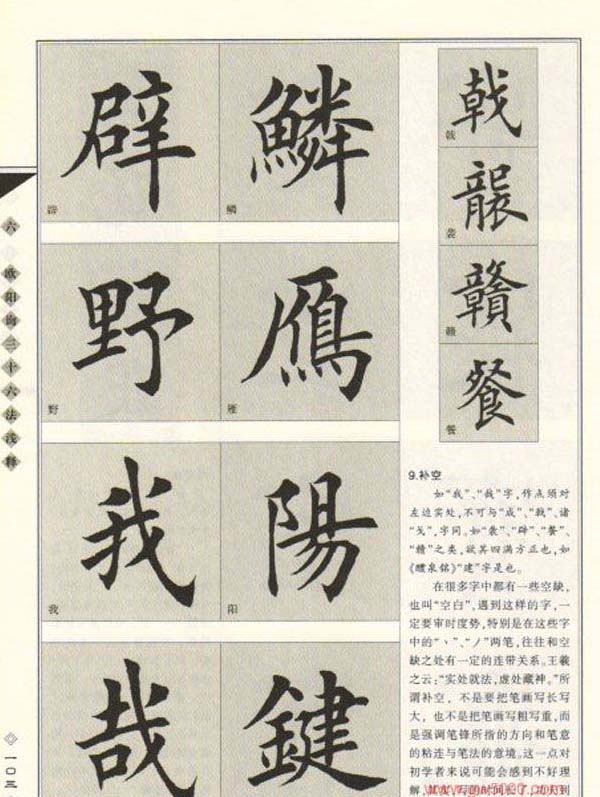 辟 鱗
辟 鳞
野 鴈
野 雁
我 陽
我 阳
哉 鍵
戟
戟
襲
袭
贛
赣
餐
餐
9.补空
如“我”、“哉”字,作点须对
左边实处,不可与“成”、“戟”、诸
“戈”,字同。如“袭”、“辟”、“餐”、
“赣”之类,欲其四满方正也,如
《醴泉铭》“建”字是也。
在很多字中都有一些空缺,
也叫“空白”,遇到这样的字,一
定要审时度势,特别是在这些字
中的“丶”、“丿”两笔,往往和空
缺之处有一定的连带关系。王羲
之云:“实处就法,虚处藏神。”所
谓补空,不是要把笔画写长写
大,也不是把笔画写粗写重,而
是强调笔锋所指的方向和笔意
的粘连与笔法的意境。这一点对
初学者来说可能会感到不好理
解,其实,写的时间长了,功夫到
六 欧阳询三十六法浅释
一〇三